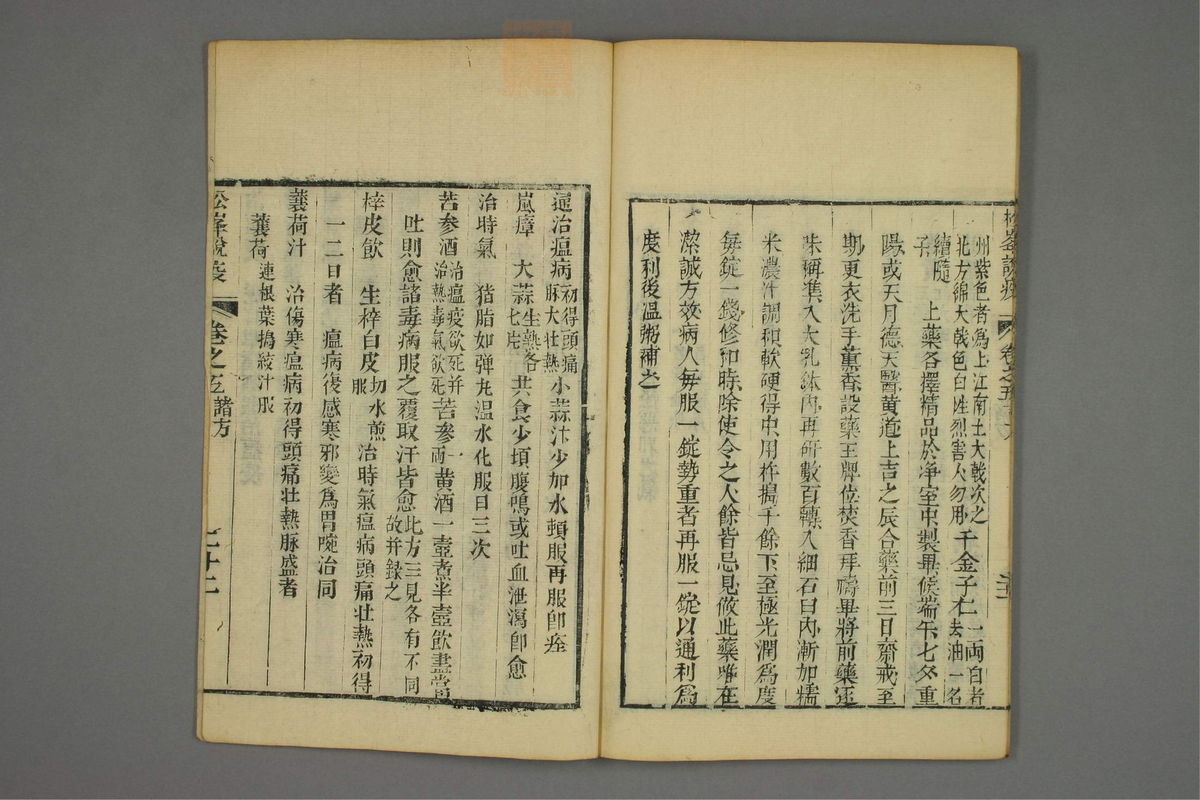 州紫色者為上江南土大戟次之北方綿大戟色白性烈害人勿用 千金子仁一兩白者去油一名續隨子
上藥各擇精品於净室中製畢候端午七夕重
陽或天月德天醫黄道上吉之辰合藥前三日齋戒至
期更衣洗手薰香設藥王牌位焚香拜禱畢將前藥逐
味稱準入大乳鉢内再研數百轉入細石臼内漸加糯
米濃汁調和軟硬得中用杵搗千餘下至極光潤為度
每錠一錢修和時除使令之人餘皆忌見做此藥唯在
潔誠方效病人每服一錠勢重者再服一錠以通利為
度利後温粥補之
松峯說疫 卷之五
逼治瘟病 初得頭痛脈大壯熱 小蒜汁少加水頓服再服卽痊
嵐瘴 大蒜生熟各七片 共食少頃腹鳴或吐血泄瀉卽愈
治時氣 猪脂如彈丸温水化服日三次
苦參酒 治瘟疫欲死并治熱毒氣欲死 苦參一兩 黄酒一壺煮半壺飲盡當
吐則愈諸毒病服之覆取汗皆愈 此方三見各有不同故并録之
梓皮飲 生梓白皮切水煎服 治時氣瘟病頭痛壯熱初得
一二日者 瘟病復感寒邪變為胃啘治同
蘘荷汁 治傷寒瘟病初得頭痛壯熱脈盛者
蘘荷連根葉搗絞汁服
松峯說疫 卷之五 諸方